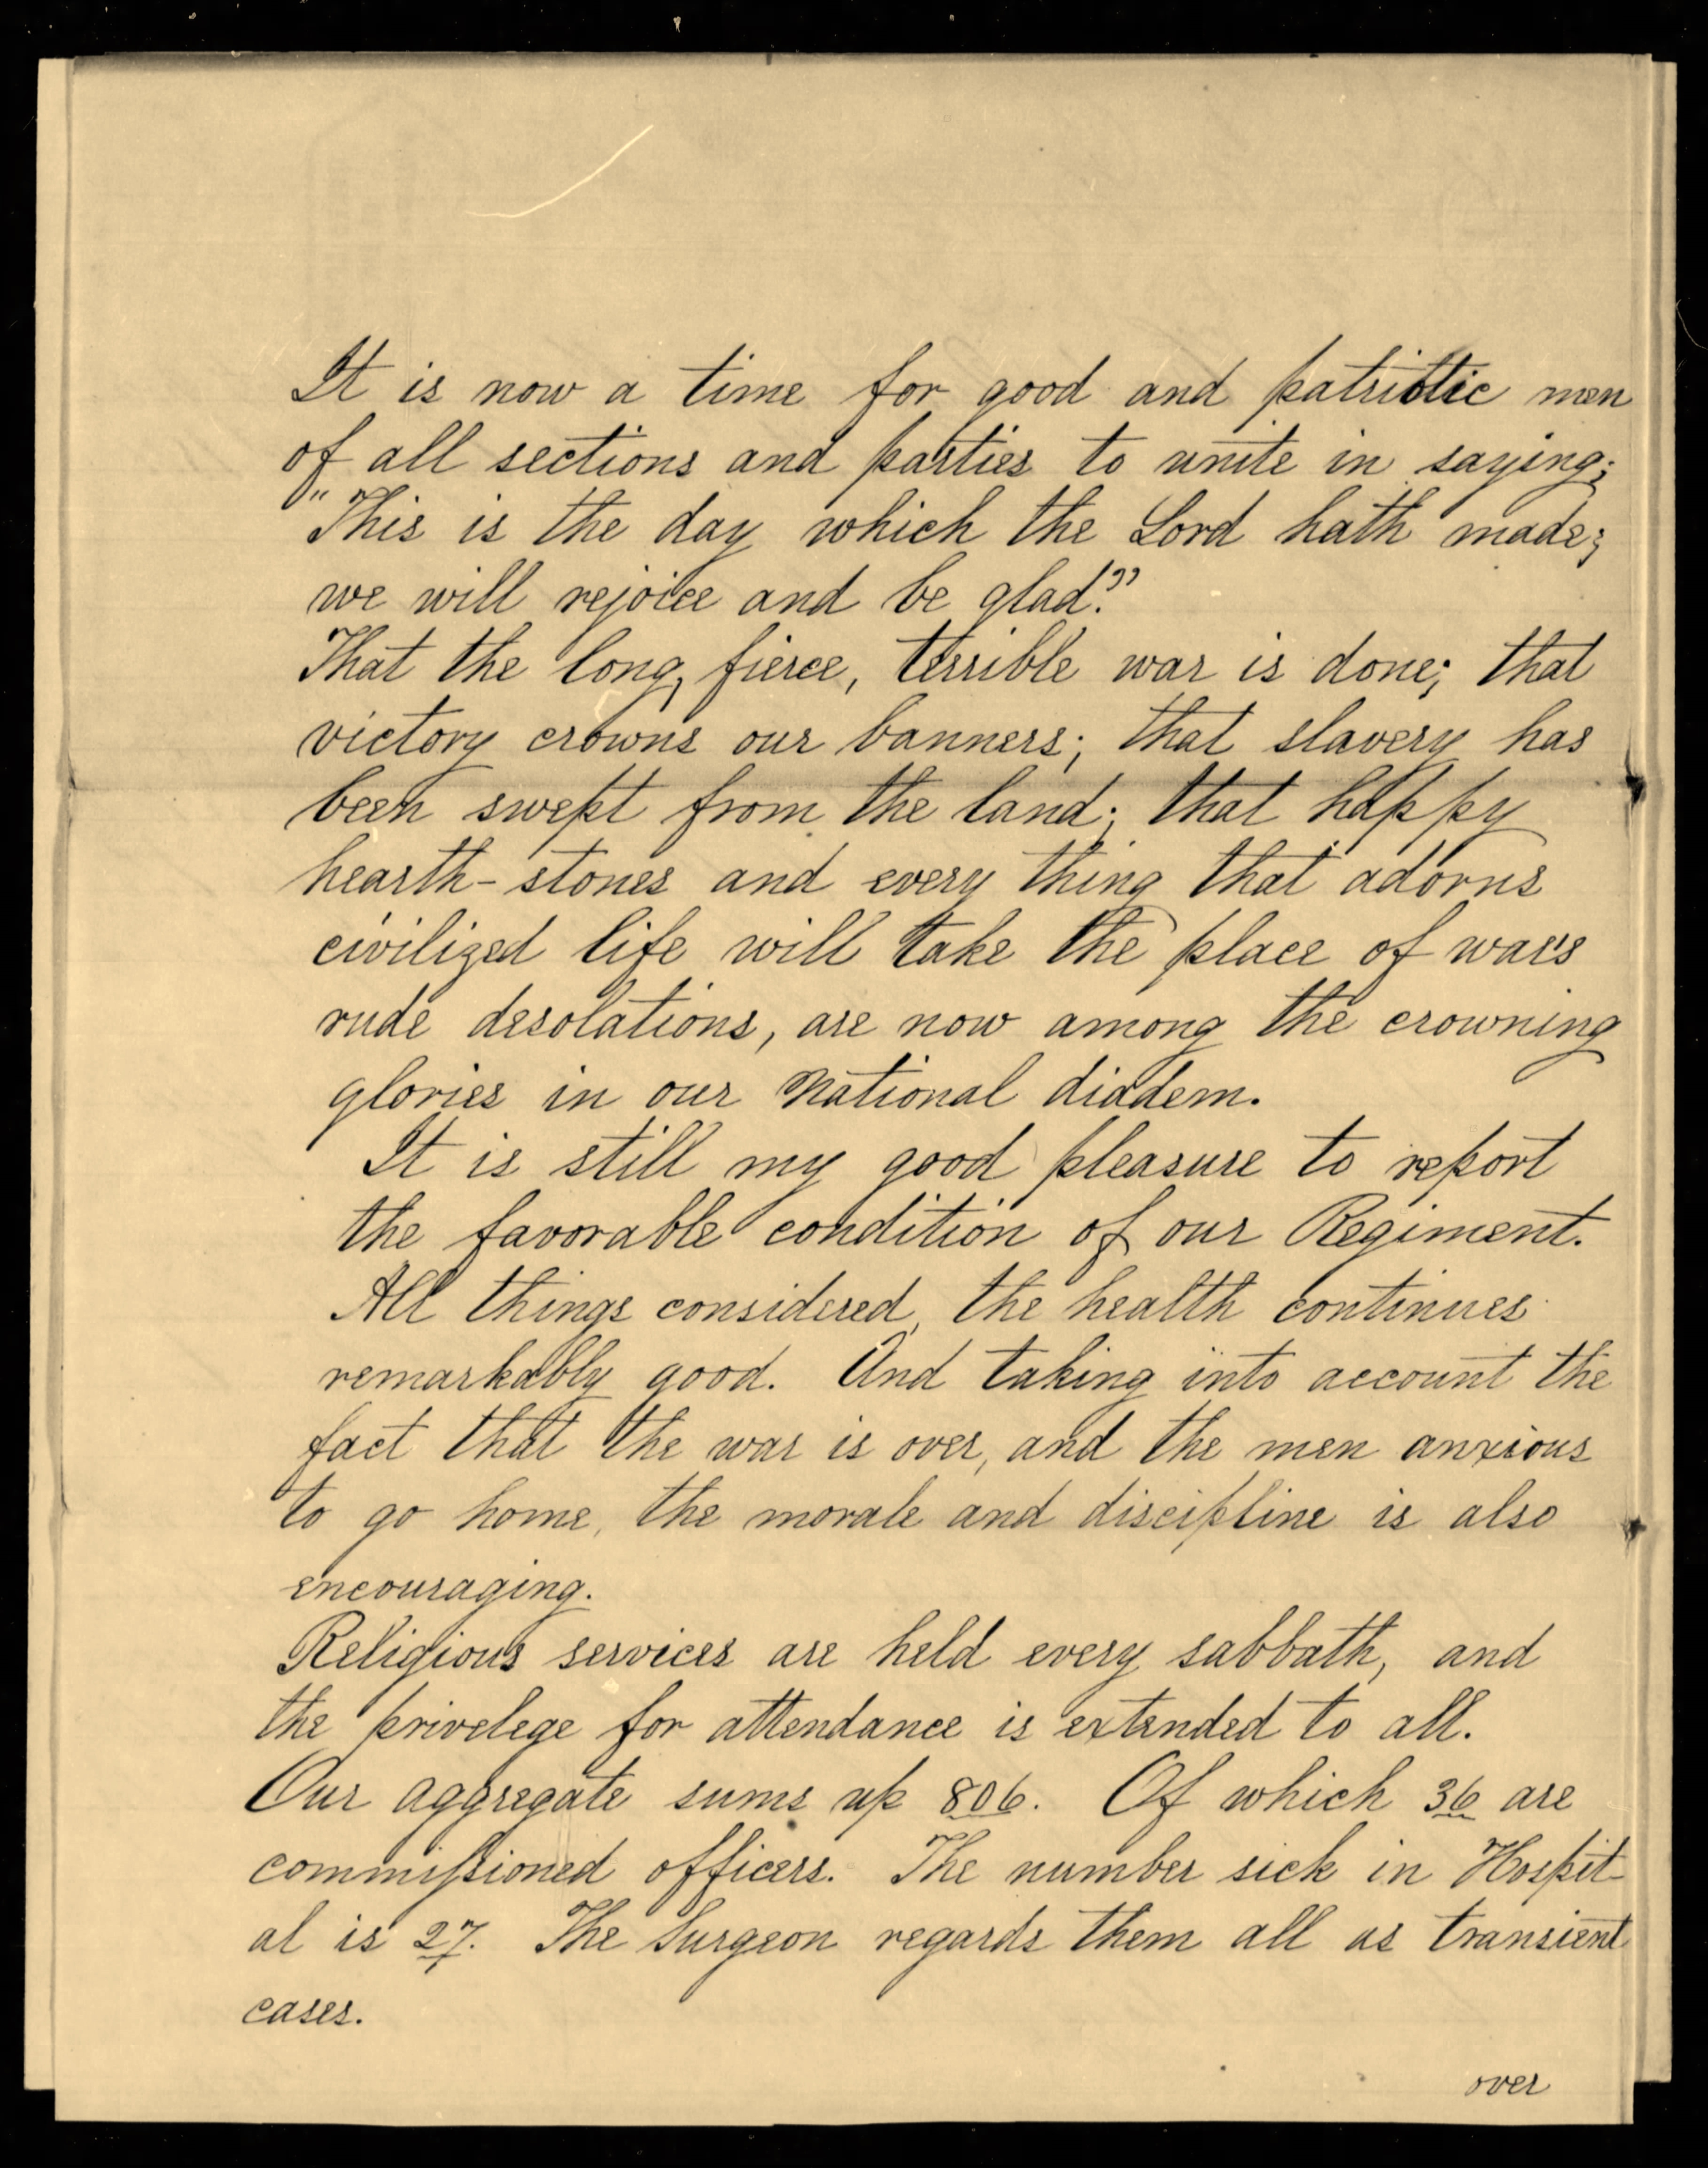 It is now a time for good and patriotic men
of all sections and parties to unite in saying;
"This is the day which the Lord hath made;
we will rejoice and be glad."
That the long, fierce, terrible war is done; that
victory crowns our banners; that slavery has
been swept from the land; that happy
hearth-stones and every thing that adorns
civilized life will take the place of war's
rude desolations, are now among the crowning
glories in our National diadem.
It is still my good pleasure to report
the favorable condition of our Regiment.
All things considered, the health continues
remarkably good. And taking into account the
fact that the war is over, and the men anxious
to go home, the morale and discipline is also
encouraging.
Religious services are held every sabbath, and
the privelege for attendance is extended to all.
Our aggregate sums up 806. Of which 36 are
commissioned officers. The number sick in Hospit-
al is 27. The Surgeon regards them all as transient
cases.
over